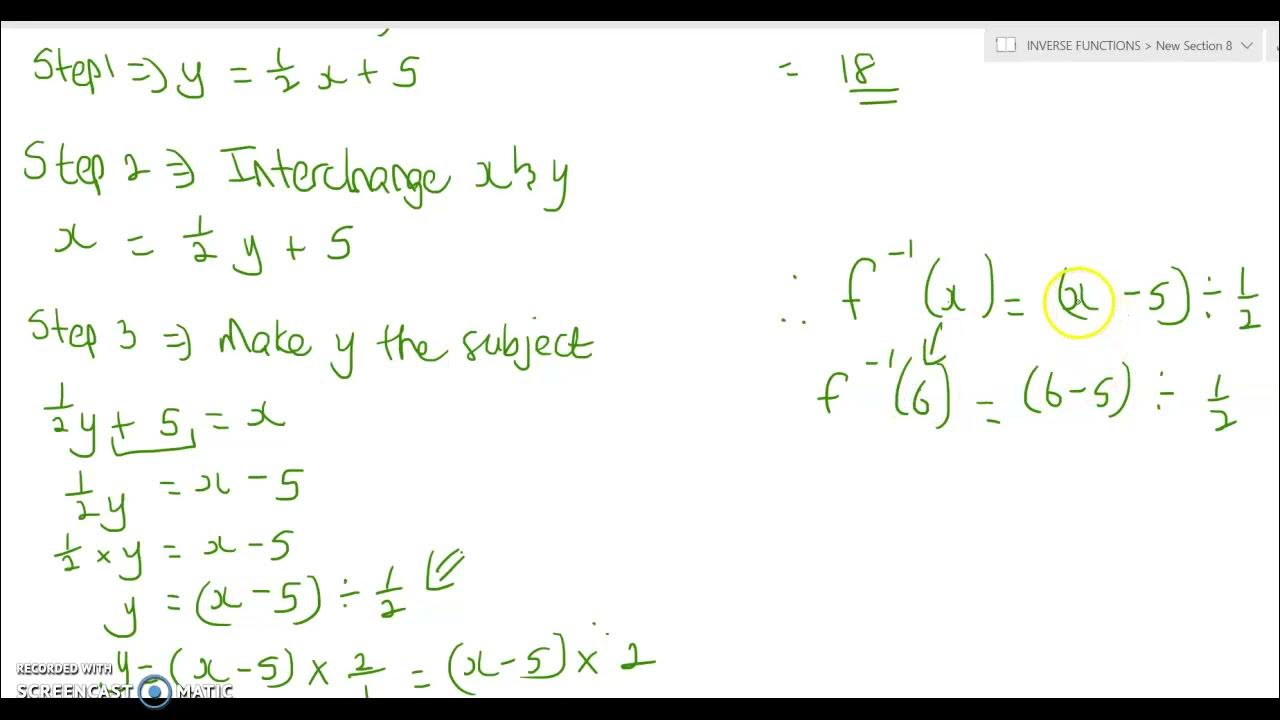 INVERSE FUNCTIONS > New Section 8
Step 1 ⇒ y = 1/2 x + 5
Step 2 ⇒ Interchange x & y
x = 1/2 y + 5
Step 3 ⇒ Make y the subject
1/2 y + 5 = x
1/2 y = x - 5
1/2 × y = x - 5
y = (x - 5) ÷ 1/2
y = (x - 5) × 2/1 = (x - 5) × 2
= 18
∴ f⁻¹(x) = (x - 5) ÷ 1/2
f⁻¹(6) = (6 - 5) ÷ 1/2
RECORDED WITH
SCREENCAST MATIC